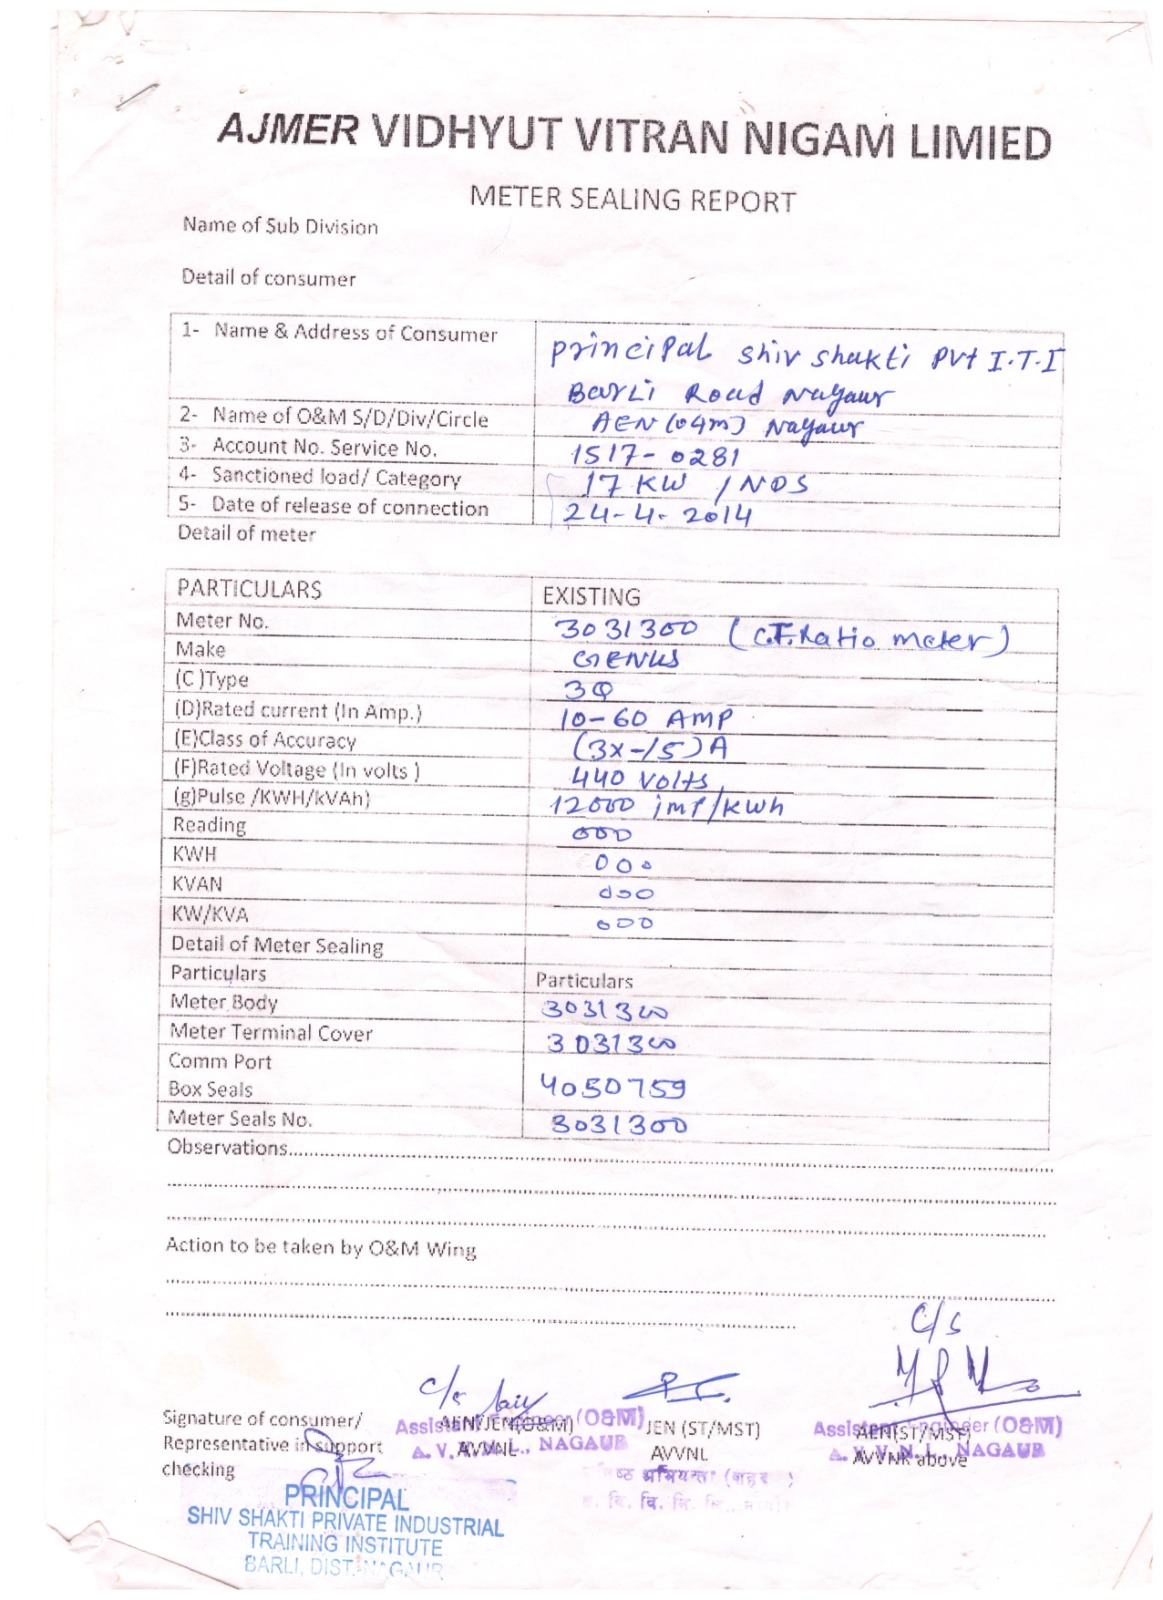 AJMER VIDHYUT VITRAN NIGAM LIMIED
METER SEALING REPORT
Name of Sub Division
Detail of consumer
1- Name & Address of Consumer principal shiv shakti pvt I.T.I
Barli Road Nagaur
2- Name of O&M S/D/Div/Circle AEN (O&M) Nagaur
3- Account No. Service No. 1517-0281
4- Sanctioned load/ Category 17 KW /NDS
5- Date of release of connection 24-4-2014
Detail of meter
PARTICULARS EXISTING
Meter No. 3031300 (C.T. Ratio meter)
Make GENUS
(C )Type 3Φ
(D)Rated current (In Amp.) 10-60 AMP
(E)Class of Accuracy (3x-/5)A
(F)Rated Voltage (In volts ) 440 volts
(g)Pulse /KWH/kVAh) 12000 imp/kwh
Reading 000
KWH 000
KVAN 000
KW/KVA 000
Detail of Meter Sealing
Particulars Particulars
Meter Body 3031300
Meter Terminal Cover 3031300
Comm Port
Box Seals 4050759
Meter Seals No. 3031300
Observations
Action to be taken by O&M Wing
C/s
C/s
Signature of consumer/ AEN/JEN(O&M) JEN (ST/MST) AEN(ST/MST)
Assistant Engineer (O&M) Assistant Engineer (O&M)
Representative in support AVVNL AVVNL AVVNR above
A. V. V. N. L., NAGAUR A. V. V. N. L., NAGAUR
checking
PRINCIPAL
SHIV SHAKTI PRIVATE INDUSTRIAL
TRAINING INSTITUTE
BARLI, DIST. NAGAUR